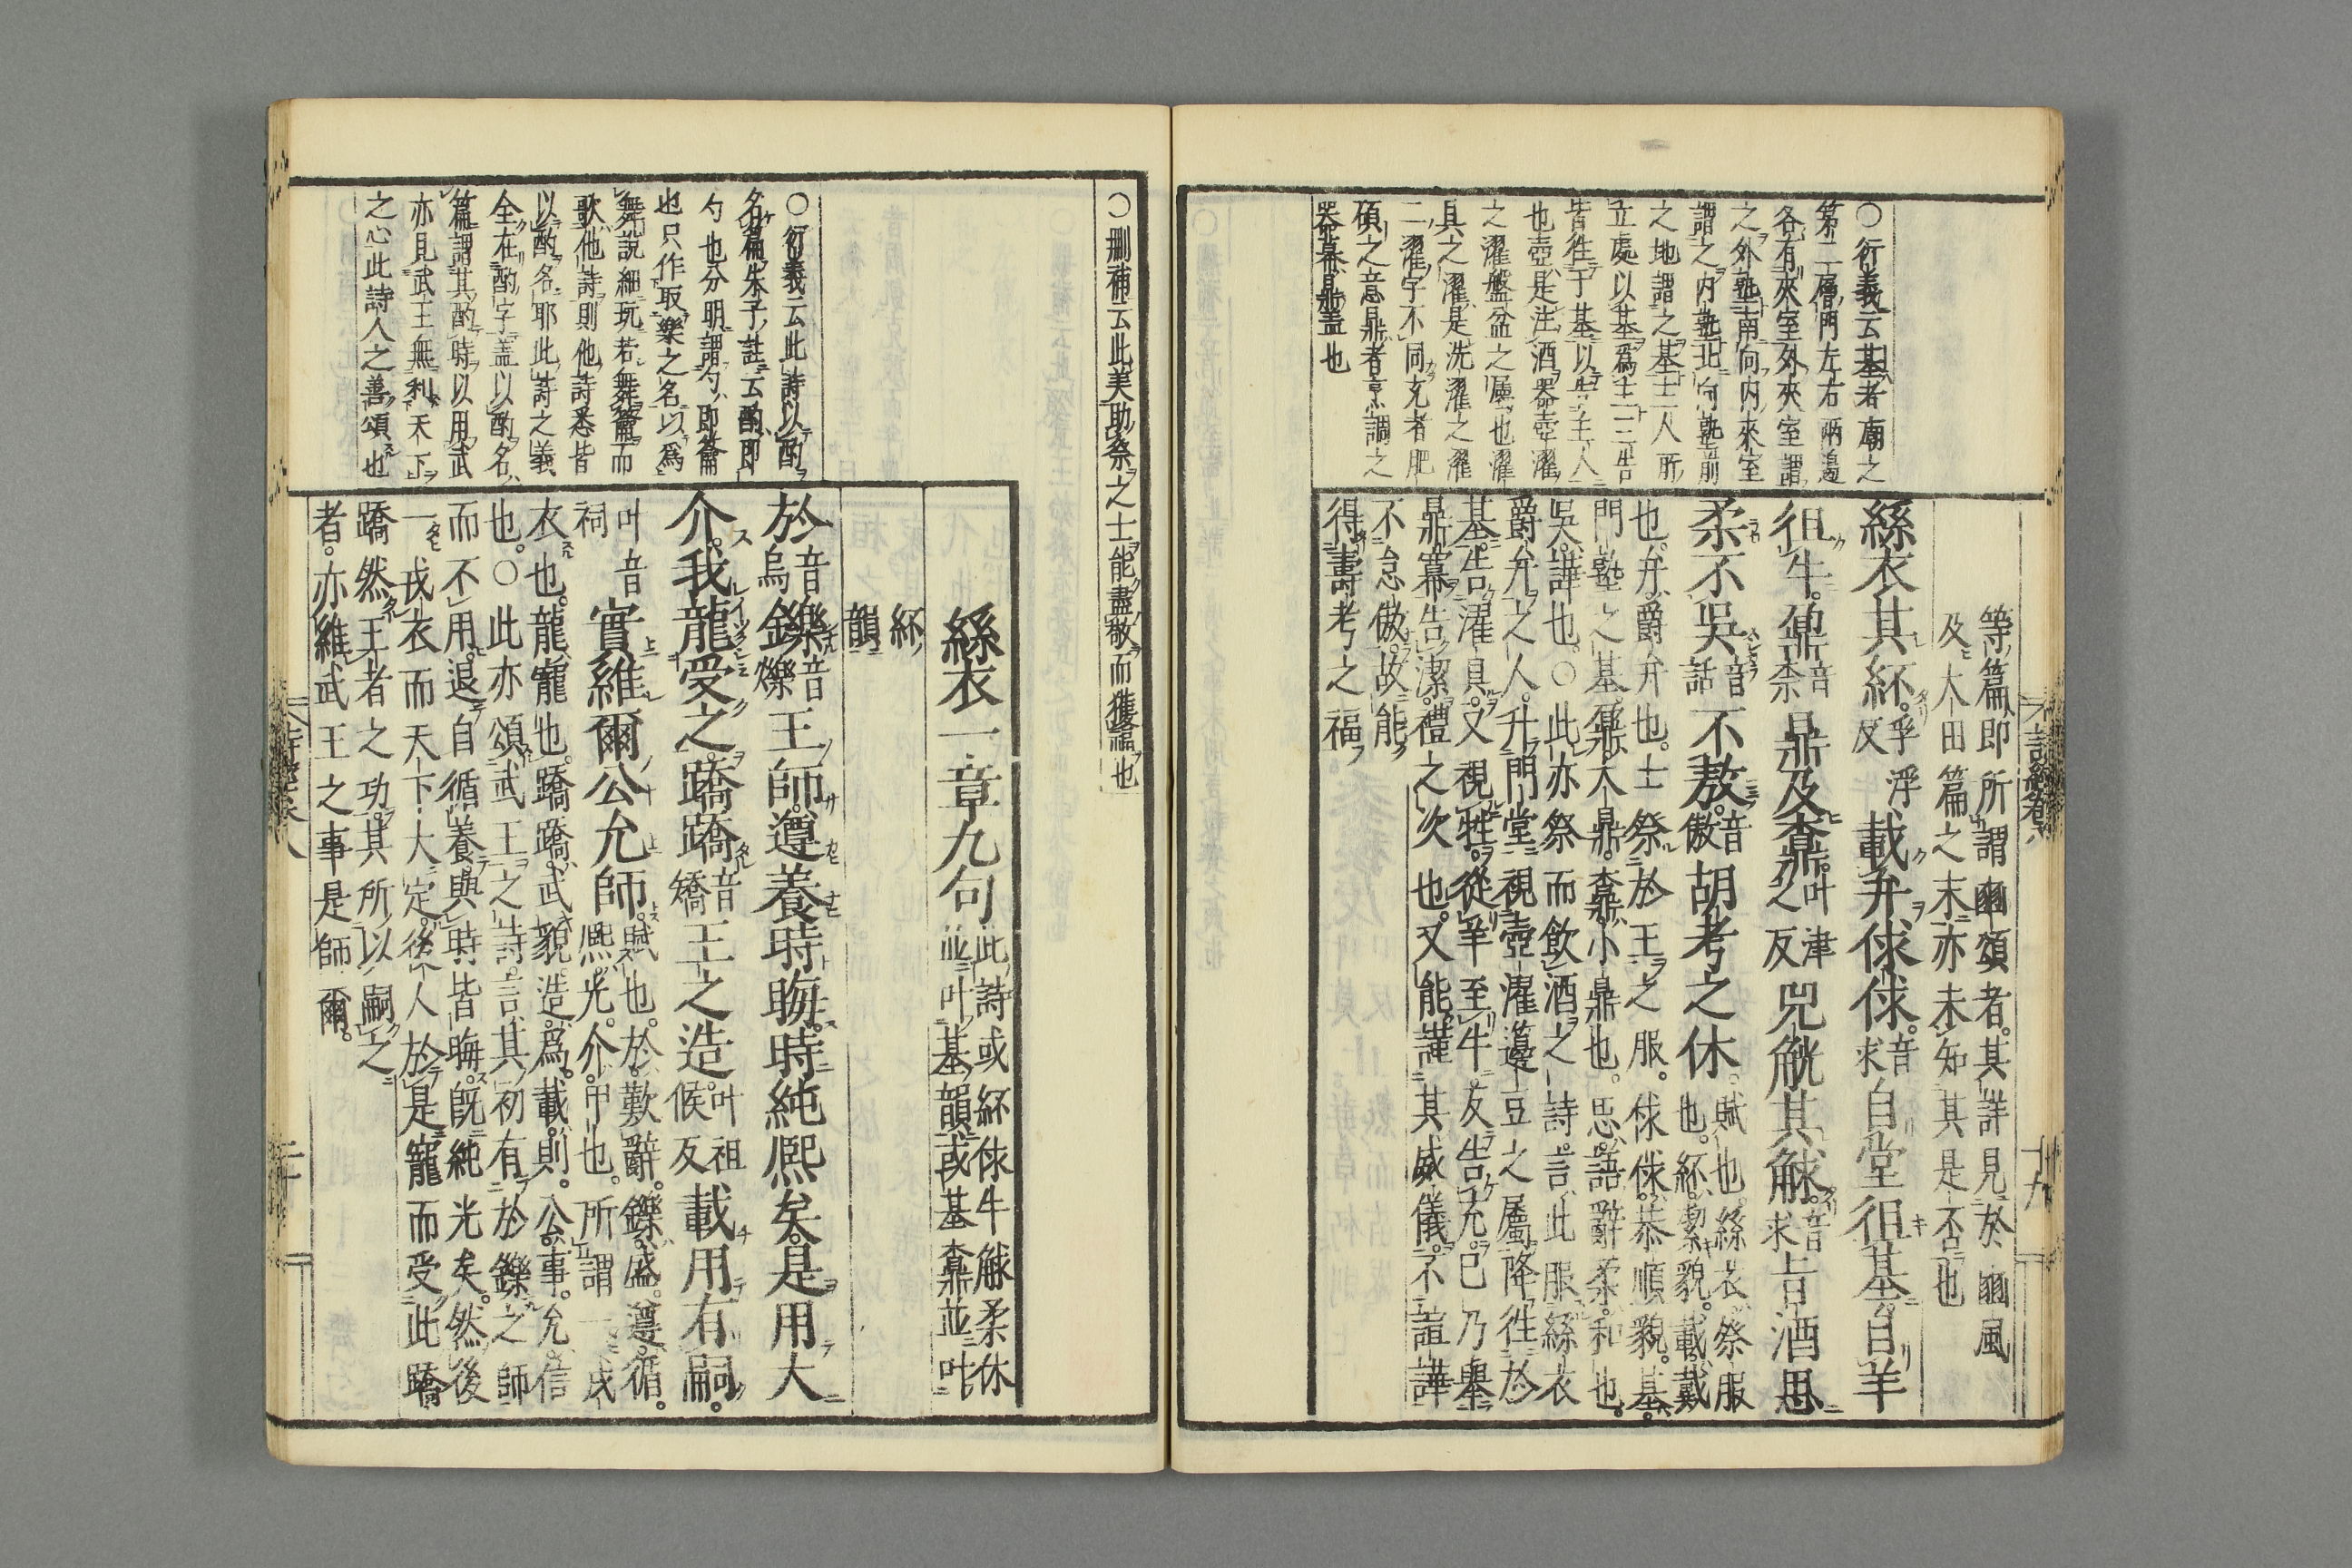 等篇即所謂豳頌者其詳見於豳風
及大田篇之末亦未知其是否也
絲衣其紑孚浮反載弁俅俅音求自堂徂基自羊
徂牛鼐音柰鼎及鼒叶津之反兕觥其觩音求旨酒思
柔不吳音話不敖音傲胡考之休賦也絲衣祭服
也紑潔貌載戴
也弁爵弁也士祭於王之服俅俅恭順貌基
門塾之基鼐大鼎鼒小鼎也思語辭柔和也
吳譁也○此亦祭而飲酒之詩言此服絲衣
爵弁之人升門堂視壺濯籩豆之屬降往於
基告濯具又視牲從羊至牛反告充已乃舉
鼎冪告潔禮之次也又能謹其威儀不諠譁
不怠傲故能
得壽考之福
○衍義云基者廟之
第二層門左右兩邊
各有夾室外夾室謂
之外塾南向內夾室
謂之內塾北向塾前
之地謂之基士二人所
立處以基爲主三告
皆往于基以告主人
也壺是注酒器壺濯
之濯盤盆之屬也濯
具之濯是洗濯之濯
二濯字不同充者肥
碩之意鼎者烹調之
器冪鼎蓋也
詩經卷八
十九
○刪補云此美助祭之士能盡敬而獲福也
絲衣一章九句此詩或紑俅牛觩柔休
並叶基韻或基鼒並叶
紑
韻
於音烏鑠音爍王師遵養時晦時純熙矣是用大
介我龍受之蹻蹻音矯王之造叶祖候反載用有嗣
叶音祠實維爾公允師賦也於歎辭鑠盛遵循
熙光介甲也所謂一戎
衣也龍寵也蹻蹻武貌造爲載則公事允信
也○此亦頌武王之詩言其初有於鑠之師
而不用退自循養與時皆晦旣純光矣然後
一戎衣而天下大定後人於是寵而受此蹻
蹻然王者之功其所以嗣之
者亦維武王之事是師爾
○衍義云此詩以酌
名篇朱子註云酌即
勺也分明謂勺即籥
也只作取樂之名以爲
舞說細玩若舞籥而
歌他詩則他詩悉皆
以酌名耶此詩之義
全在酌字蓋以酌名
篇謂其酌時以用武
亦見武王無利天下
之心此詩人之善頌也